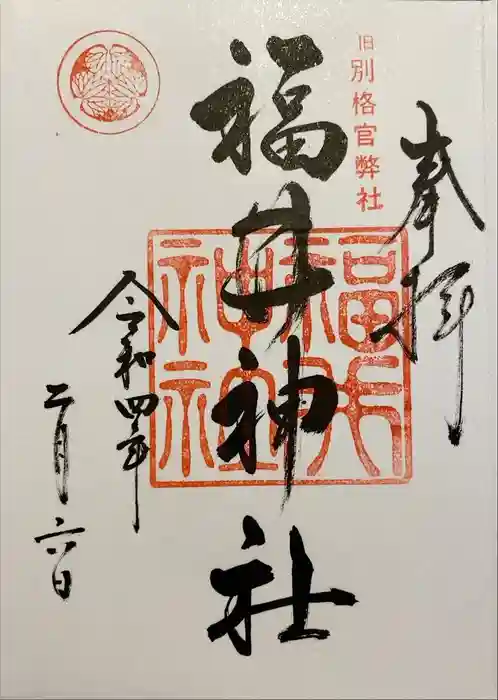 奉拝
旧別格官幣社
福井神社
福井神社
令和四年
二月六日